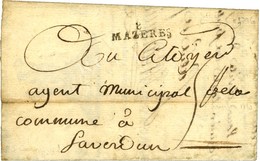 8
MAZERES
Au Citoyen
agent municipal de la
commune à
Saverdun